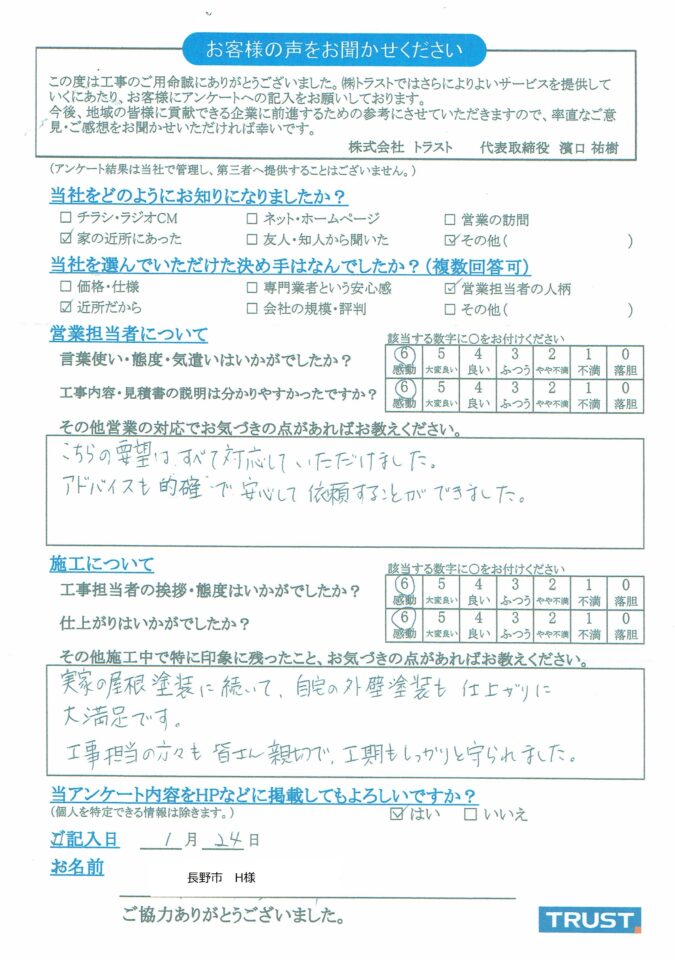 お客様の声をお聞かせください
この度は工事のご用命誠にありがとうございました。㈱トラストではさらによりよいサービスを提供して
いくにあたり、お客様にアンケートへの記入をお願いしております。
今後、地域の皆様に貢献できる企業に前進するための参考にさせていただきますので、率直なご意
見・ご感想をお聞かせいただければ幸いです。
株式会社 トラスト 代表取締役 濱口 祐樹
(アンケート結果は当社で管理し、第三者へ提供することはございません。)
当社をどのようにお知りになりましたか？
☐ チラシ・ラジオCM ☐ ネット・ホームページ ☐ 営業の訪問
☑ 家の近所にあった ☐ 友人・知人から聞いた ☑ その他( )
当社を選んでいただけた決め手はなんでしたか？(複数回答可)
☐ 価格・仕様 ☐ 専門業者という安心感 ☑ 営業担当者の人柄
☑ 近所だから ☐ 会社の規模・評判 ☐ その他( )
営業担当者について 該当する数字に○をお付けください
言葉使い・態度・気遣いはいかがでしたか？ 6 5 4 3 2 1 0
感動 大変良い 良い ふつう やや不満 不満 落胆
工事内容・見積書の説明は分かりやすかったですか？ 6 5 4 3 2 1 0
感動 大変良い 良い ふつう やや不満 不満 落胆
その他営業の対応でお気づきの点があればお教えください。
こちらの要望はすべて対応していただけました。
アドバイスも的確で安心して依頼することができました。
施工について 該当する数字に○をお付けください
工事担当者の挨拶・態度はいかがでしたか？ 6 5 4 3 2 1 0
感動 大変良い 良い ふつう やや不満 不満 落胆
仕上がりはいかがでしたか？ 6 5 4 3 2 1 0
感動 大変良い 良い ふつう やや不満 不満 落胆
その他施工中で特に印象に残ったこと、お気づきの点があればお教えください。
実家の屋根塗装に続いて、自宅の外壁塗装も仕上がりに
大満足です。
工事担当の方々も皆さん親切で、工期もしっかりと守られました。
当アンケート内容をHPなどに掲載してもよろしいですか？
(個人を特定できる情報は除きます。) ☑ はい ☐ いいえ
ご記入日 1 月 24 日
お名前 長野市 H様
ご協力ありがとうございました。
TRUST